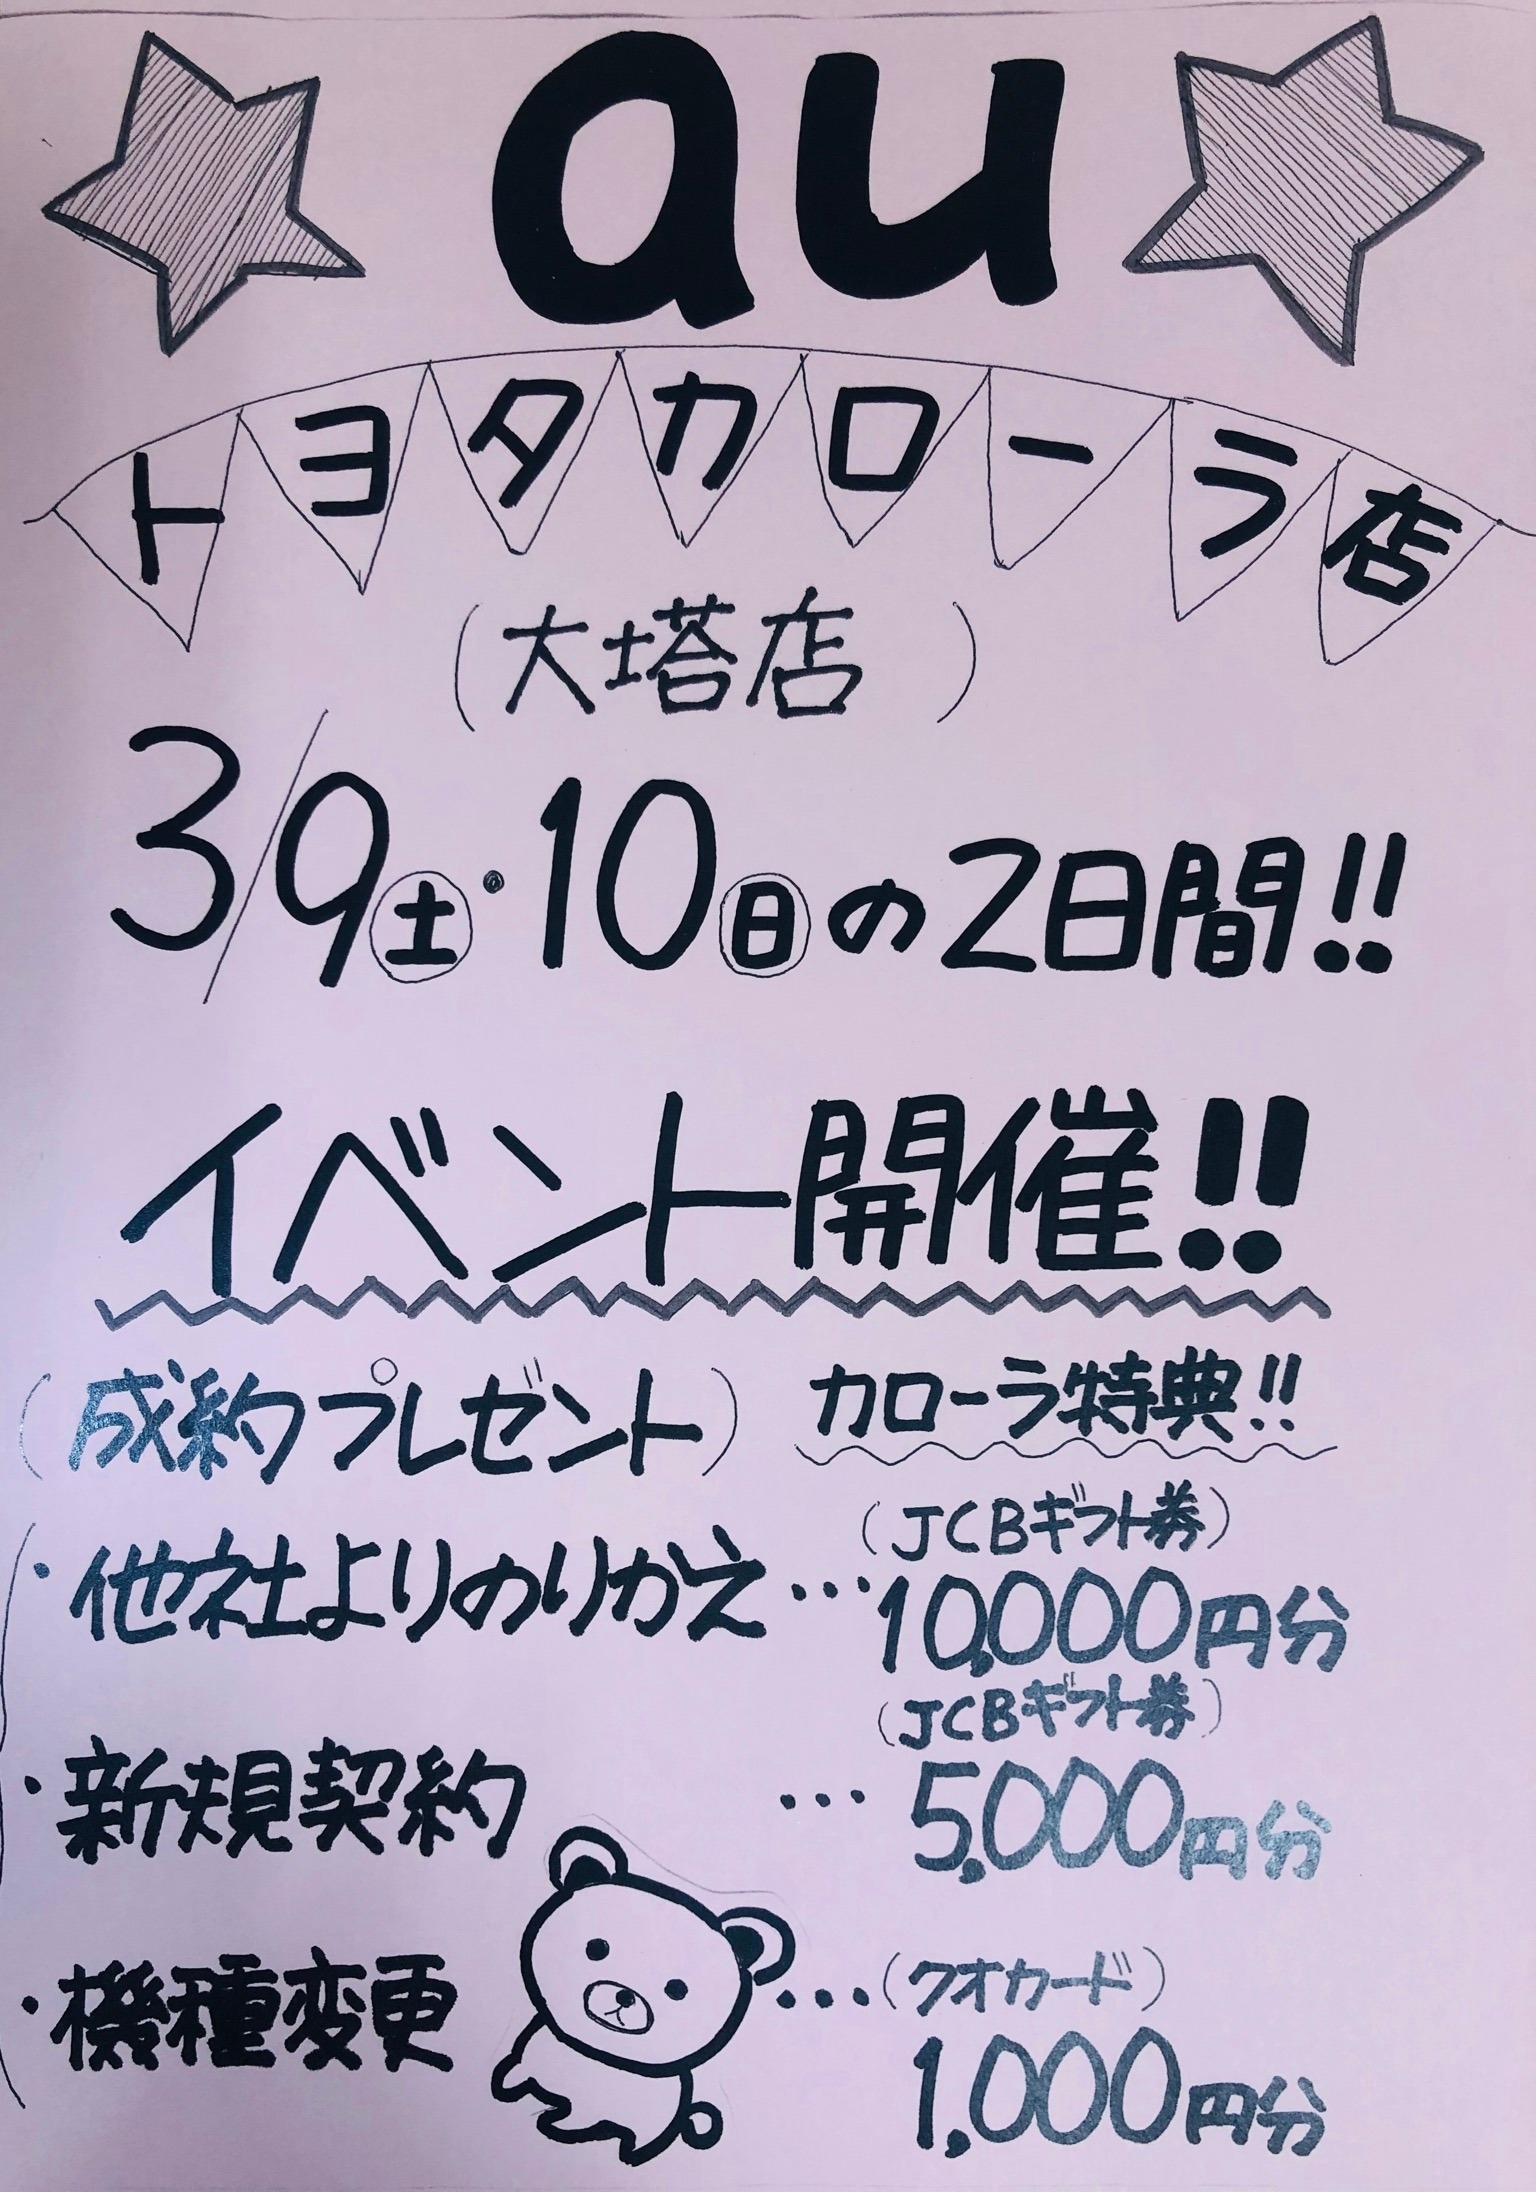 au
トヨタカローラ店
(大塔店)
3/9土・10日の2日間!!
イベント開催!!
(成約プレゼント) カローラ特典!!
(JCBギフト券)
・他社よりのりかえ…10,000円分
(JCBギフト券)
・新規契約 …5,000円分
・機種変更 …(クオカード)
1,000円分